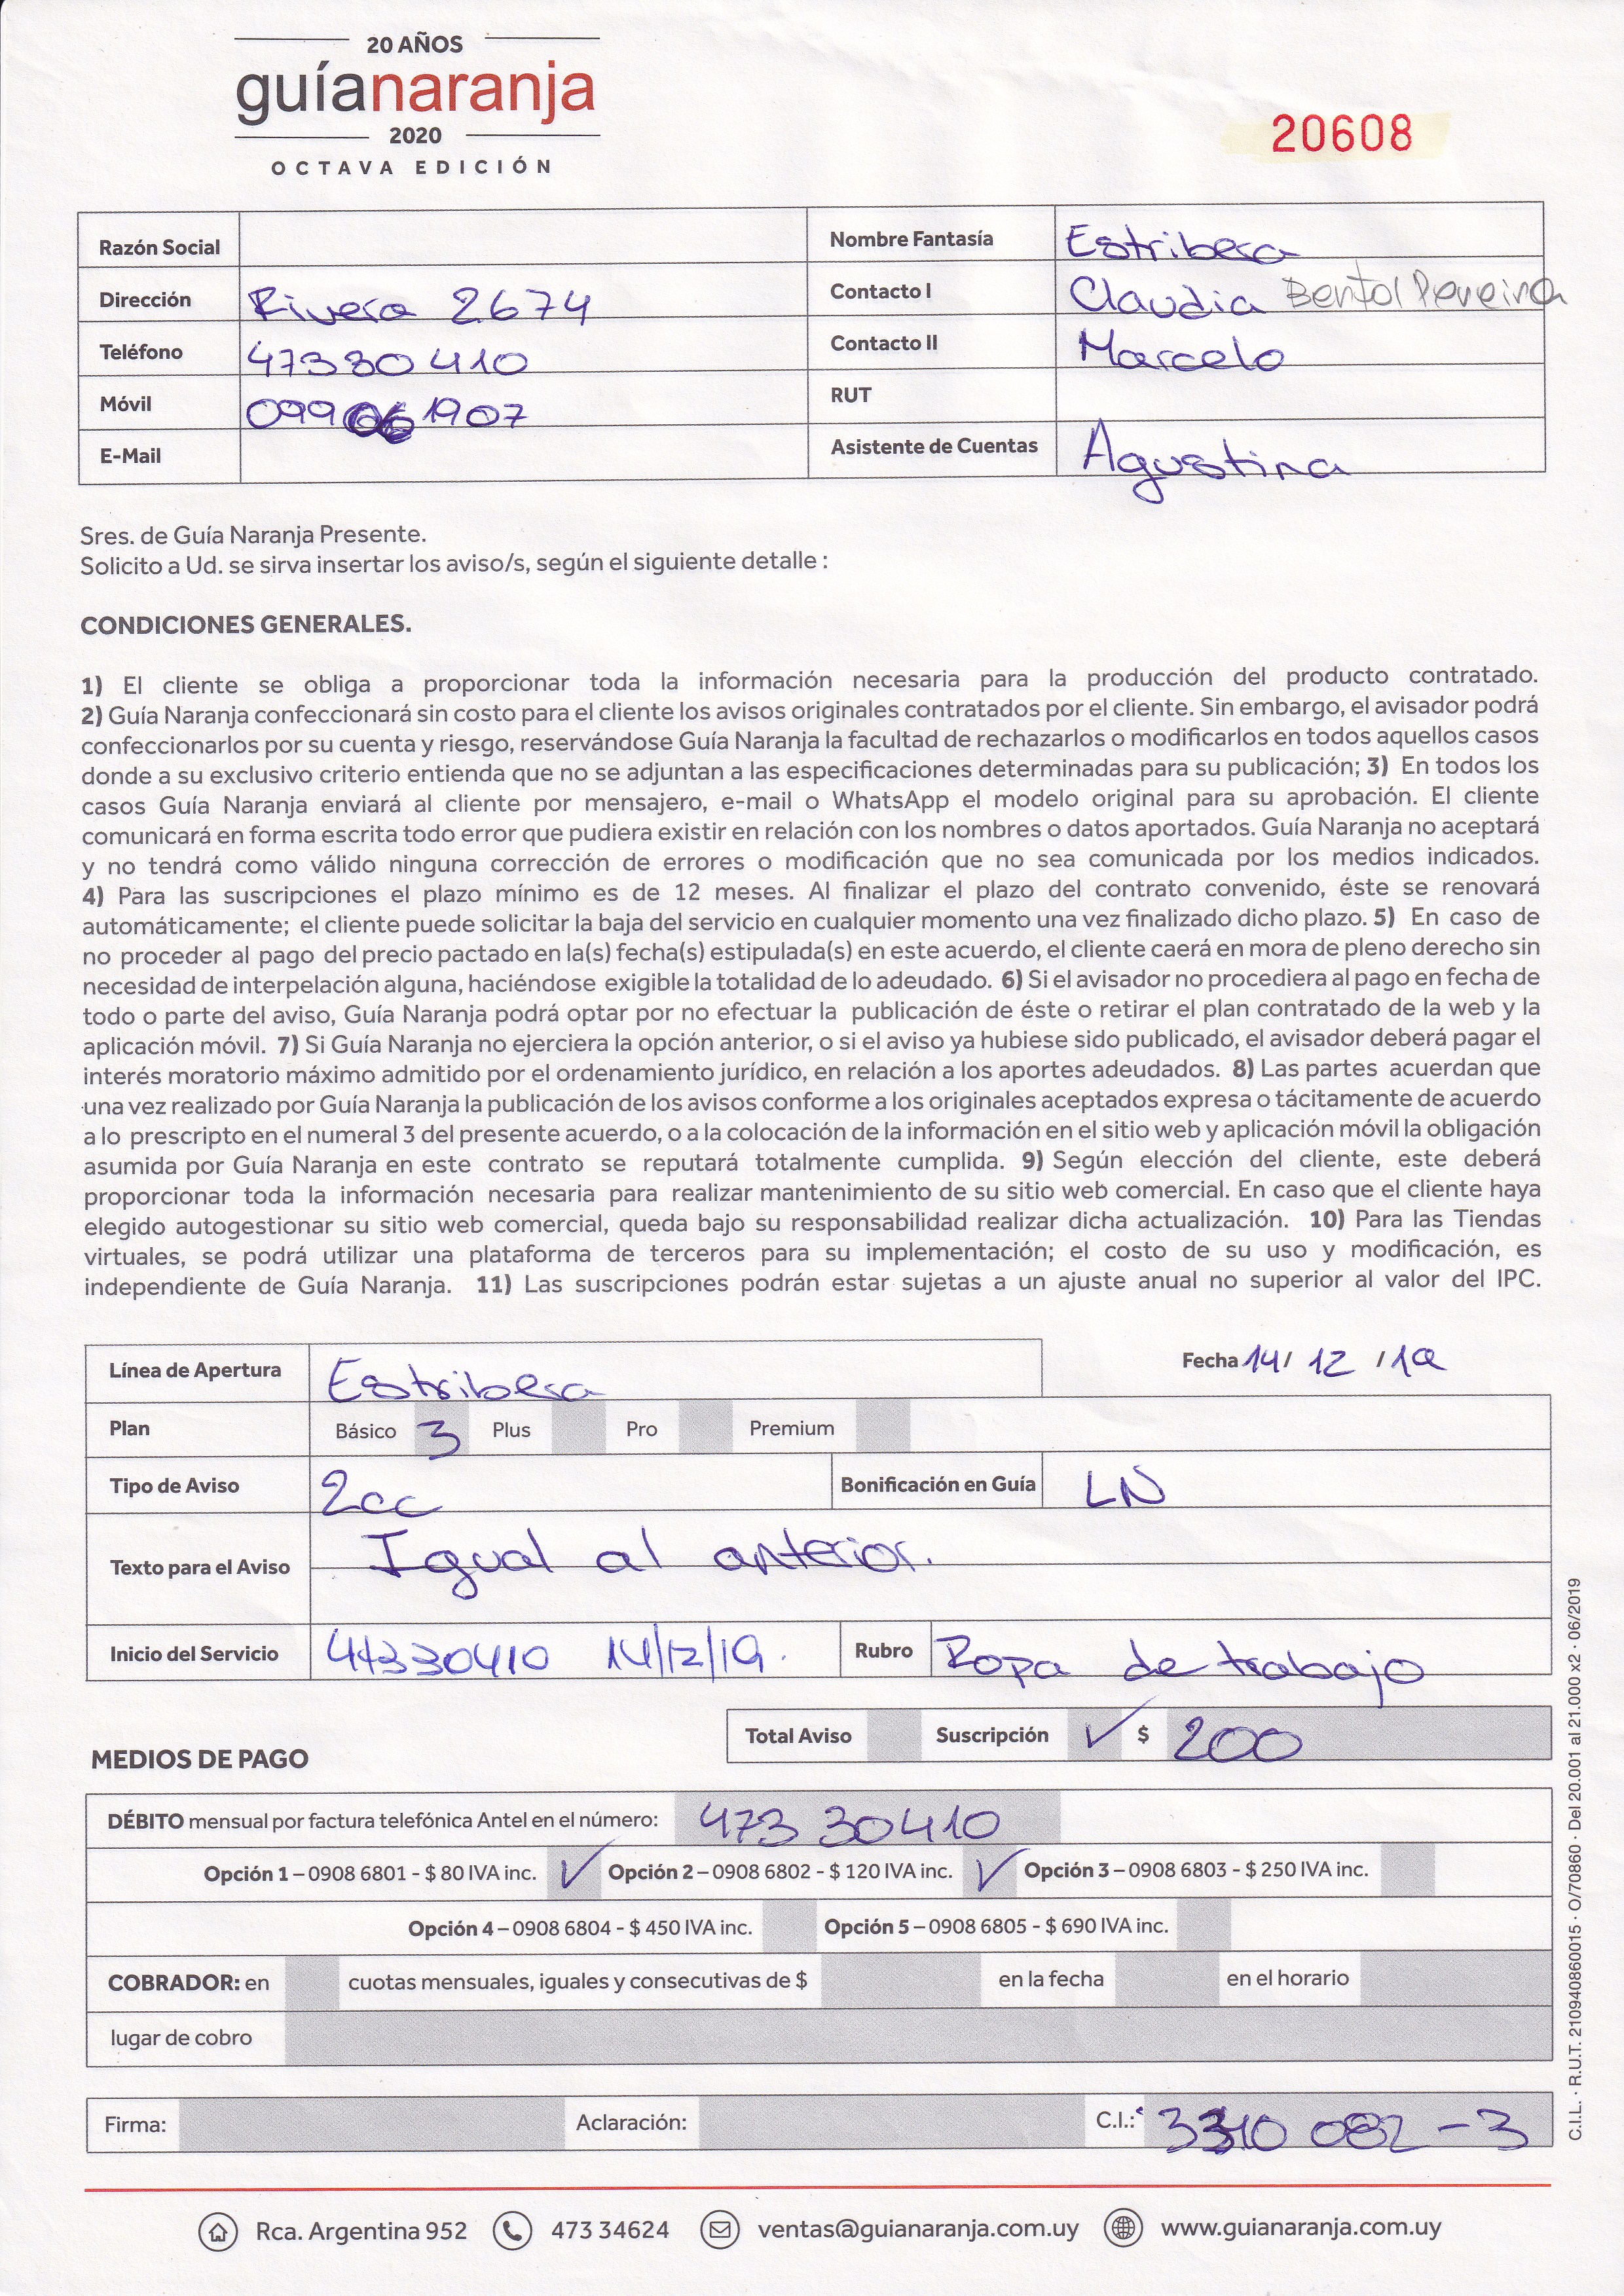 20 AÑOS
guíanaranja
2020
OCTAVA EDICIÓN
20608
Razón Social
Nombre Fantasía Estribera
Dirección Rivera 2674
Contacto I Claudia Pereira
Teléfono 47330410
Contacto II Marcelo
Móvil 099061907
RUT
E-Mail
Asistente de Cuentas Agustina
Sres. de Guía Naranja Presente.
Solicito a Ud. se sirva insertar los aviso/s, según el siguiente detalle :
CONDICIONES GENERALES.
1) El cliente se obliga a proporcionar toda la información necesaria para la producción del producto contratado.
2) Guía Naranja confeccionará sin costo para el cliente los avisos originales contratados por el cliente. Sin embargo, el avisador podrá
confeccionarlos por su cuenta y riesgo, reservándose Guía Naranja la facultad de rechazarlos o modificarlos en todos aquellos casos
donde a su exclusivo criterio entienda que no se adjuntan a las especificaciones determinadas para su publicación; 3) En todos los
casos Guía Naranja enviará al cliente por mensajero, e-mail o WhatsApp el modelo original para su aprobación. El cliente
comunicará en forma escrita todo error que pudiera existir en relación con los nombres o datos aportados. Guía Naranja no aceptará
y no tendrá como válido ninguna corrección de errores o modificación que no sea comunicada por los medios indicados.
4) Para las suscripciones el plazo mínimo es de 12 meses. Al finalizar el plazo del contrato convenido, éste se renovará
automáticamente; el cliente puede solicitar la baja del servicio en cualquier momento una vez finalizado dicho plazo. 5) En caso de
no proceder al pago del precio pactado en la(s) fecha(s) estipulada(s) en este acuerdo, el cliente caerá en mora de pleno derecho sin
necesidad de interpelación alguna, haciéndose exigible la totalidad de lo adeudado. 6) Si el avisador no procediera al pago en fecha de
todo o parte del aviso, Guía Naranja podrá optar por no efectuar la publicación de éste o retirar el plan contratado de la web y la
aplicación móvil. 7) Si Guía Naranja no ejerciera la opción anterior, o si el aviso ya hubiese sido publicado, el avisador deberá pagar el
interés moratorio máximo admitido por el ordenamiento jurídico, en relación a los aportes adeudados. 8) Las partes acuerdan que
una vez realizado por Guía Naranja la publicación de los avisos conforme a los originales aceptados expresa o tácitamente de acuerdo
a lo prescripto en el numeral 3 del presente acuerdo, o a la colocación de la información en el sitio web y aplicación móvil la obligación
asumida por Guía Naranja en este contrato se reputará totalmente cumplida. 9) Según elección del cliente, este deberá
proporcionar toda la información necesaria para realizar mantenimiento de su sitio web comercial. En caso que el cliente haya
elegido autogestionar su sitio web comercial, queda bajo su responsabilidad realizar dicha actualización. 10) Para las Tiendas
virtuales, se podrá utilizar una plataforma de terceros para su implementación; el costo de su uso y modificación, es
independiente de Guía Naranja. 11) Las suscripciones podrán estar sujetas a un ajuste anual no superior al valor del IPC.
Línea de Apertura Estribera
Fecha 14/ 12 /19
Plan Básico 3 Plus Pro Premium
Tipo de Aviso 2cc Bonificación en Guía LN
Texto para el Aviso Igual al anterior.
Inicio del Servicio 47330410 14/12/19. Rubro Ropa de trabajo
Total Aviso Suscripción ✓ $ 200
MEDIOS DE PAGO
DÉBITO mensual por factura telefónica Antel en el número: 473 30410
Opción 1 – 0908 6801 - $ 80 IVA inc. ✓ Opción 2 – 0908 6802 - $ 120 IVA inc. ✓ Opción 3 – 0908 6803 - $ 250 IVA inc.
Opción 4 – 0908 6804 - $ 450 IVA inc. Opción 5 – 0908 6805 - $ 690 IVA inc.
COBRADOR: en cuotas mensuales, iguales y consecutivas de $ en la fecha en el horario
lugar de cobro
Firma: Aclaración: C.I.: 3310 082 - 3
Rca. Argentina 952 473 34624 ventas@guianaranja.com.uy www.guianaranja.com.uy
C.I.L. · R.U.T. 210940860015 · O/70860 · Del 20.001 al 21.000 x2 · 06/2019